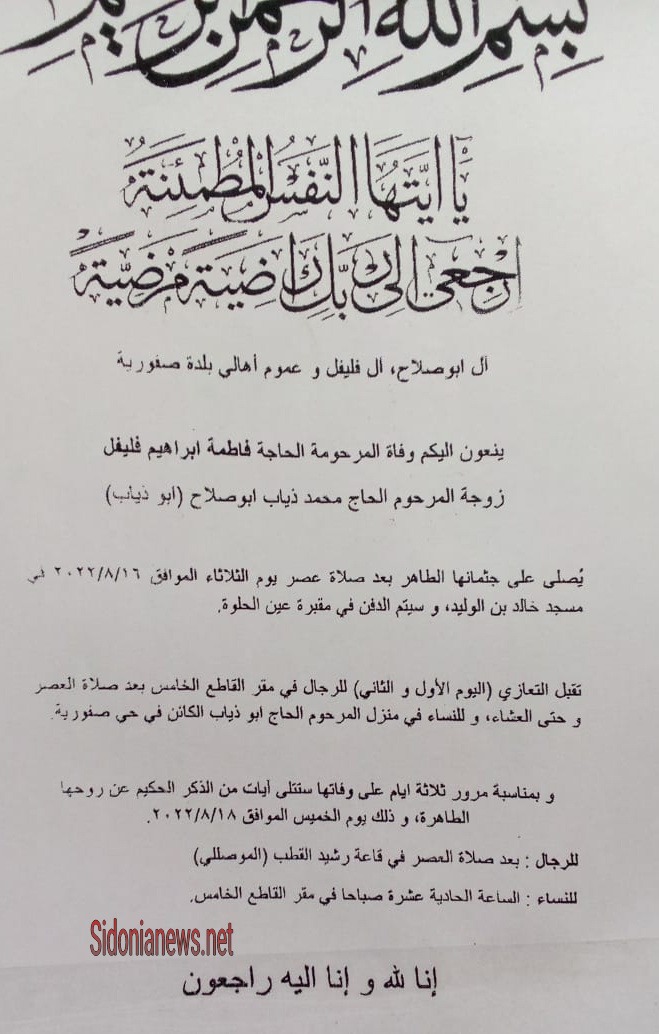 بسم الله الرحمن الرحيم
يَا أَيَّتُهَا النَّفْسُ الْمُطْمَئِنَّةُ
ارْجِعِي إِلَى رَبِّكِ رَاضِيَةً مَرْضِيَّةً
آل ابو صلاح، آل فليفل و عموم أهالي بلدة صفورية
ينعون اليكم وفاة المرحومة الحاجة فاطمة ابراهيم فليفل
زوجة المرحوم الحاج محمد ذياب ابوصلاح (ابو ذياب)
يُصلى على جثمانها الطاهر بعد صلاة عصر يوم الثلاثاء الموافق ٢٠٢٢/٨/١٦ في
مسجد خالد بن الوليد، و سيتم الدفن في مقبرة عين الحلوة.
تقبل التعازي (اليوم الأول و الثاني) للرجال في مقر القاطع الخامس بعد صلاة العصر
و حتى العشاء، و للنساء في منزل المرحوم الحاج ابو ذياب الكائن في حي صفورية.
و بمناسبة مرور ثلاثة ايام على وفاتها ستتلى آيات من الذكر الحكيم عن روحها
الطاهرة، و ذلك يوم الخميس الموافق ٢٠٢٢/٨/١٨.
للرجال : بعد صلاة العصر في قاعة رشيد القطب (الموصللي)
للنساء : الساعة الحادية عشرة صباحا في مقر القاطع الخامس.
Sidonianews.net
إنا لله و إنا اليه راجعون